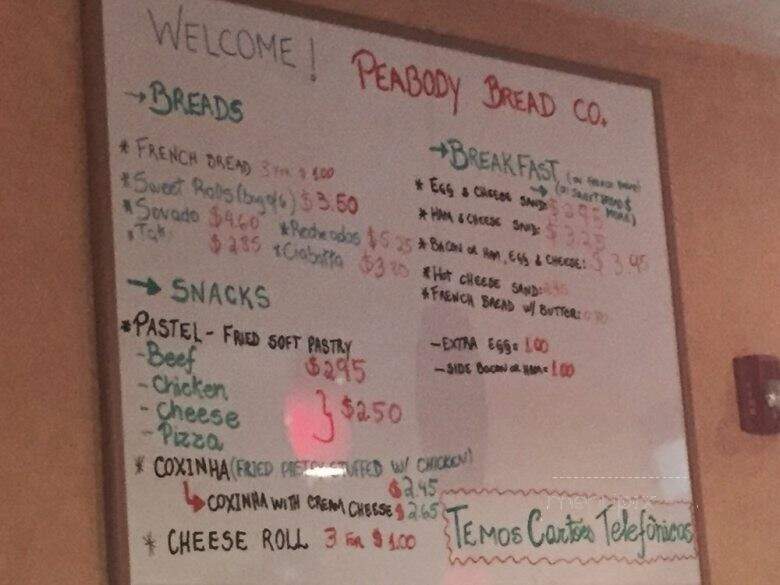 WELCOME! PEABODY BREAD CO.
→ BREADS
* FRENCH BREAD 3 FOR $ 1.00
* Sweet Rolls (bag of 6) $3.50
* Sovado $4.60
* Recheados $5.25
$2.85
* Ciabatta
→ SNACKS
* PASTEL - FRIED SOFT PASTRY
- Beef $2.95
- Chicken
- Cheese } $2.50
- Pizza
* COXINHA (FRIED PASTRY STUFFED W/ CHICKEN) $2.45
COXINHA WITH CREAM CHEESE $2.65
* CHEESE ROLL 3 FOR $1.00
→ BREAKFAST (ON FRENCH BREAD)
* EGG & CHEESE SAND: $2.95
* HAM & CHEESE SAND: $3.25
* BACON OR HAM, EGG & CHEESE: $3.95
* HOT CHEESE SAND:
* FRENCH BREAD W/ BUTTER:
- EXTRA EGG = 1.00
- SIDE BACON OR HAM = 1.00
TEMOS Cartões Telefônicos